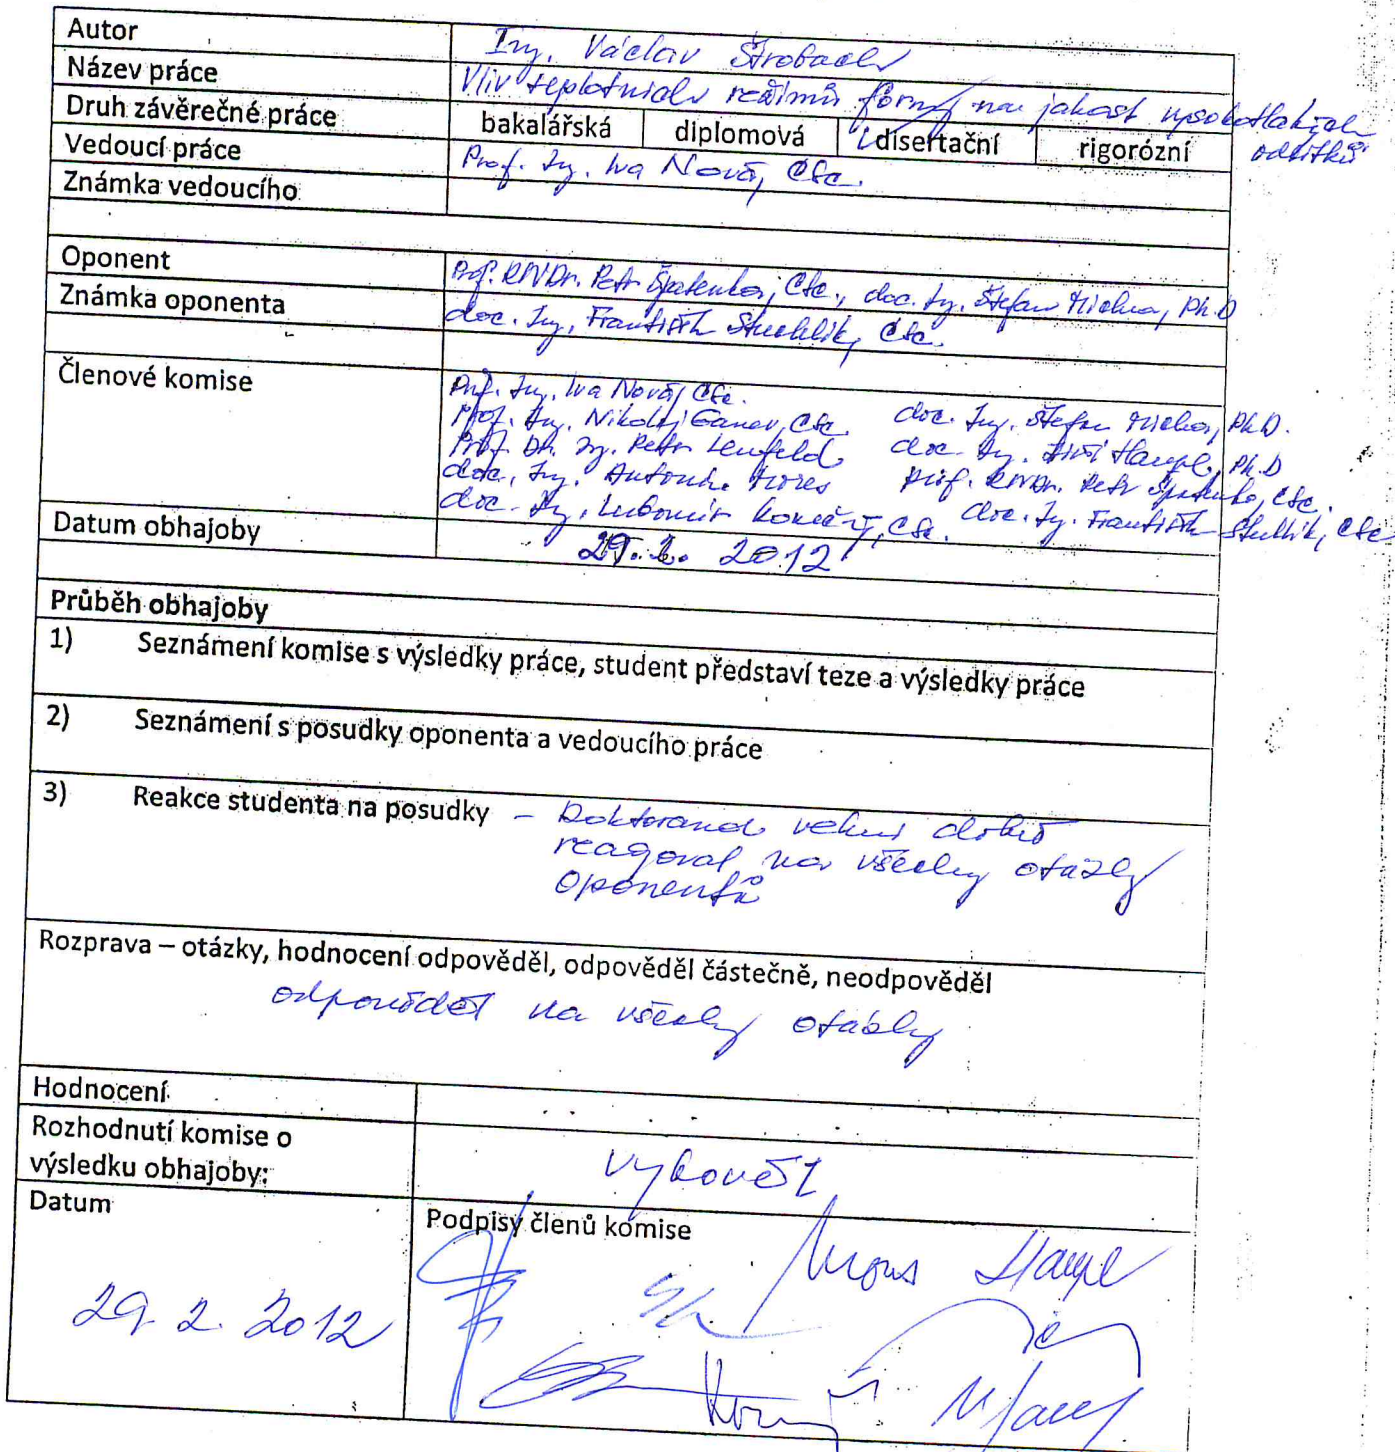 Autor Ing. Václav Štrobach
Název práce Vliv teplotních režimů formy na jakost vysokotlakých odlitků
Druh závěrečné práce bakalářská diplomová disertační rigorózní
Vedoucí práce Prof. Ing. Iva Nová, CSc.
Známka vedoucího
Oponent Prof. RNDr. Petr Špatenka, CSc., doc. Ing. Štefan Michna, Ph.D
Známka oponenta doc. Ing. František Stuchlík, CSc.
Členové komise Prof. Ing. Iva Nová, CSc.
Prof. Ing. Nikolaj Ganev, CSc. doc. Ing. Štefan Michna, Ph.D.
Prof. Dr. Ing. Petr Lenfeld doc. Ing. Jiří Hampl, Ph.D
doc. Ing. Antonín Mores Prof. RNDr. Petr Špatenka, CSc.
doc. Ing. Lubomír Konečný, CSc. doc. Ing. František Stuchlík, CSc
Datum obhajoby 29. 2. 2012
Průběh obhajoby
1) Seznámení komise s výsledky práce, student představí teze a výsledky práce
2) Seznámení s posudky oponenta a vedoucího práce
3) Reakce studenta na posudky – Doktorand velmi dobře
reagoval na všechny otázky
oponentů
Rozprava – otázky, hodnocení odpověděl, odpověděl částečně, neodpověděl
odpověděl na všechny otázky
Hodnocení
Rozhodnutí komise o
výsledku obhajoby: vyhověl
Datum Podpisy členů komise
Mores Hampl
29. 2. 2012